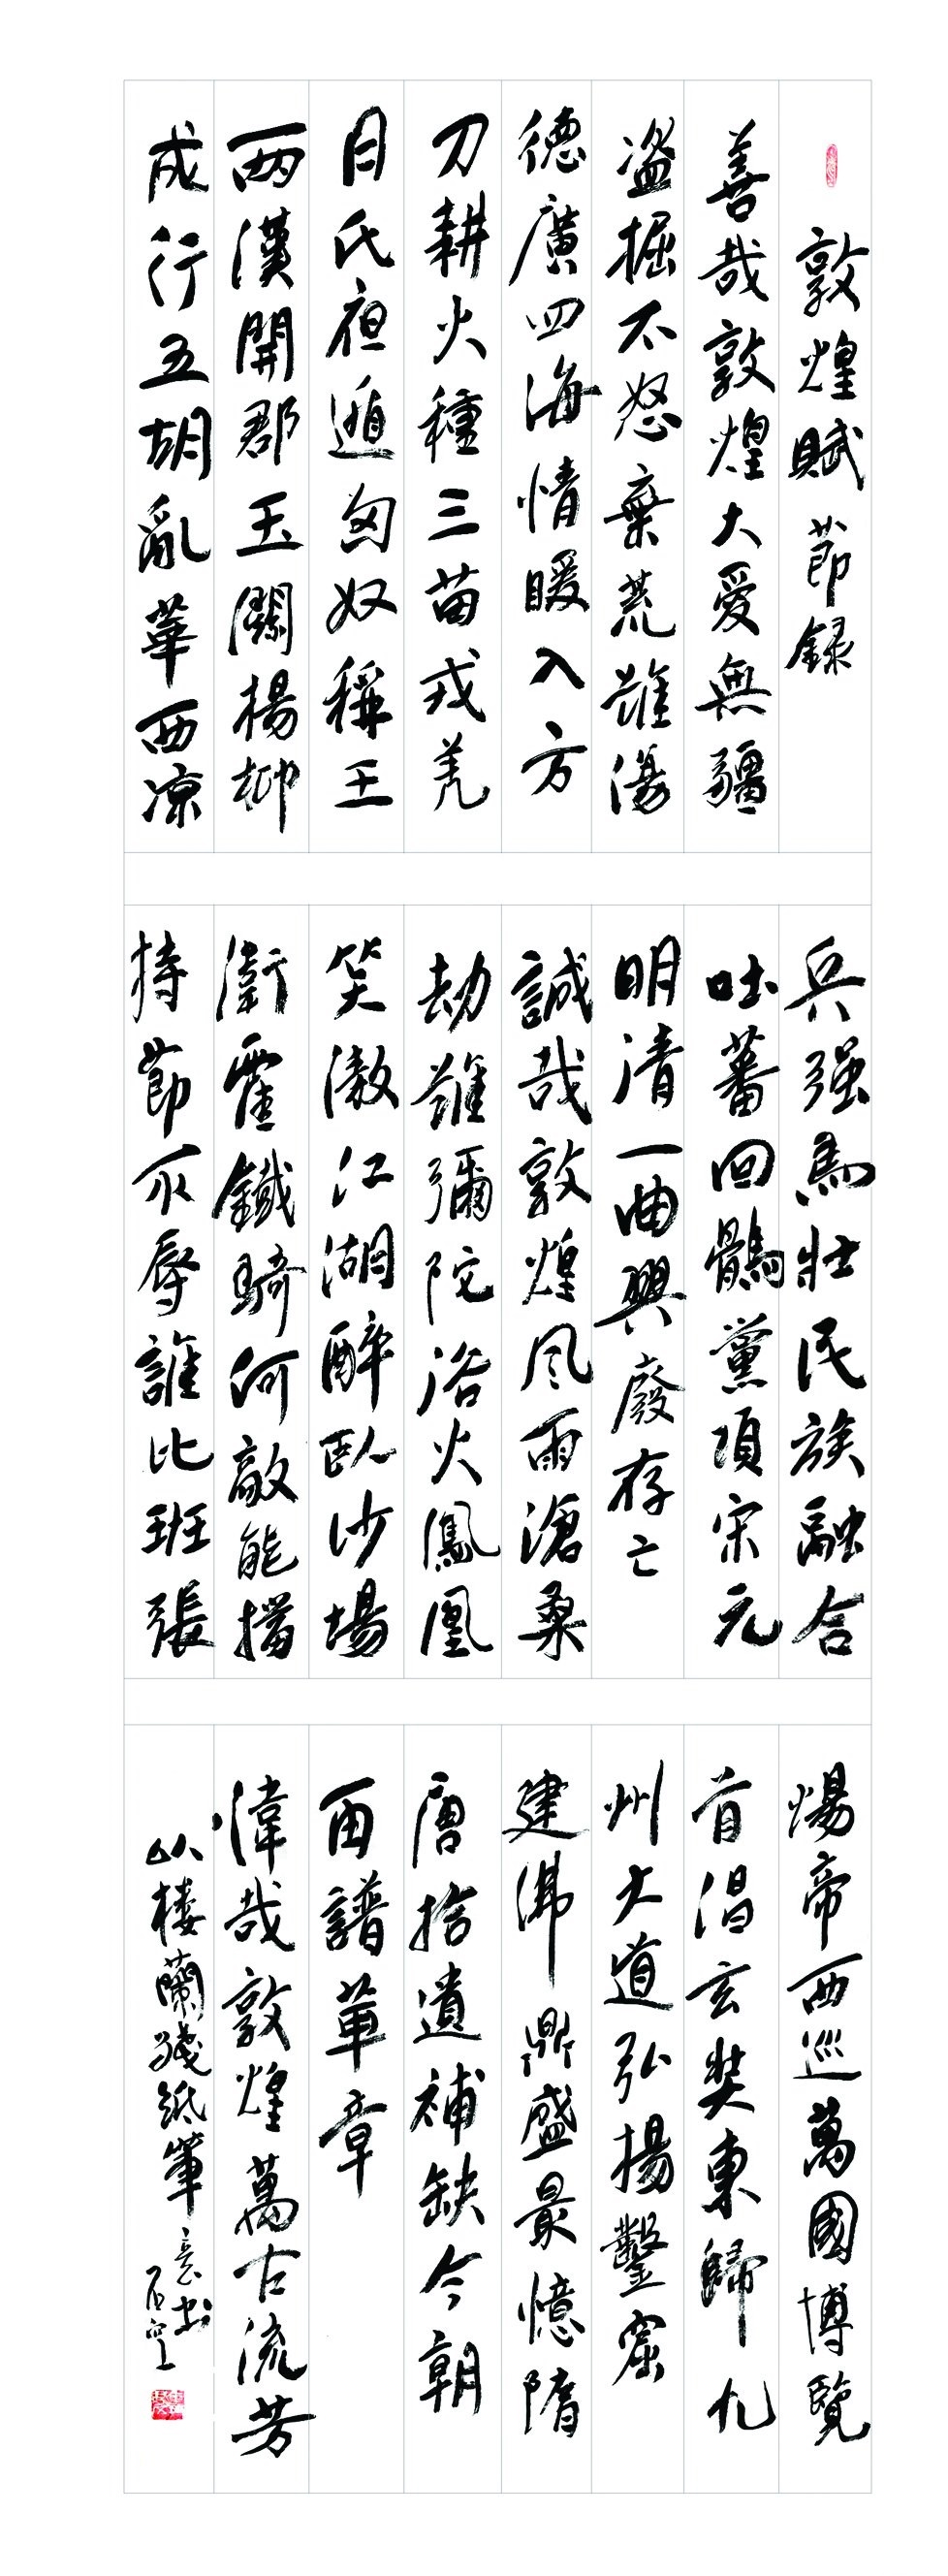 敦煌賦 節録
善哉敦煌大愛無疆
盗掘不怒棄荒誰傷
德廣四海情暖入方
刀耕火種三苗戎羌
月氏夜遁匈奴稱王
两漢開郡玉關楊柳
成行五胡亂華西凉
兵强馬壮民族融合
吐蕃回鶻黨項宋元
明清一曲興廢存亡
誠哉敦煌風雨滄桑
劫難彌陀浴火鳳凰
笑傲江湖醉臥沙場
衛霍鐵騎何敵能擋
持節不辱誰比班張
煬帝西巡萬國博覽
首倡玄奘東歸九
州大道弘揚鑿窟
建佛鼎盛最憶隋
唐捨遺補缺今朝
再譜華章
偉哉敦煌萬古流芳
以楼蘭殘紙筆意書